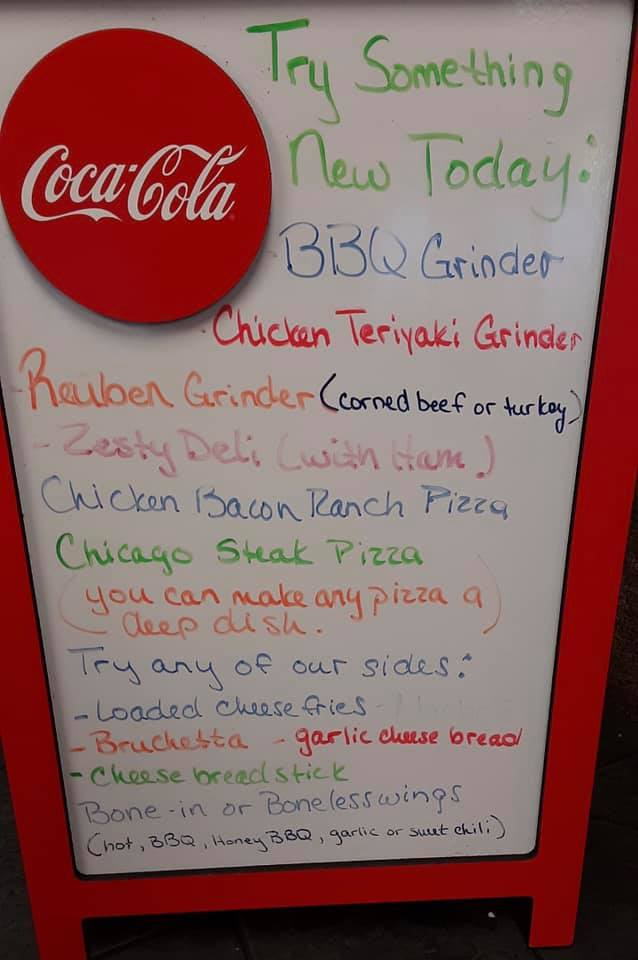 Coca-Cola
Try Something
New Today:
BBQ Grinder
Chicken Teriyaki Grinder
Reuben Grinder (corned beef or turkey)
- Zesty Deli (with Ham)
Chicken Bacon Ranch Pizza
Chicago Steak Pizza
(you can make any pizza a
deep dish.)
Try any of our sides:
- Loaded cheese fries
- Bruchetta - garlic cheese bread
- Cheese breadstick
Bone-in or Boneless wings
(hot, BBQ, Honey BBQ, garlic or sweet chili)